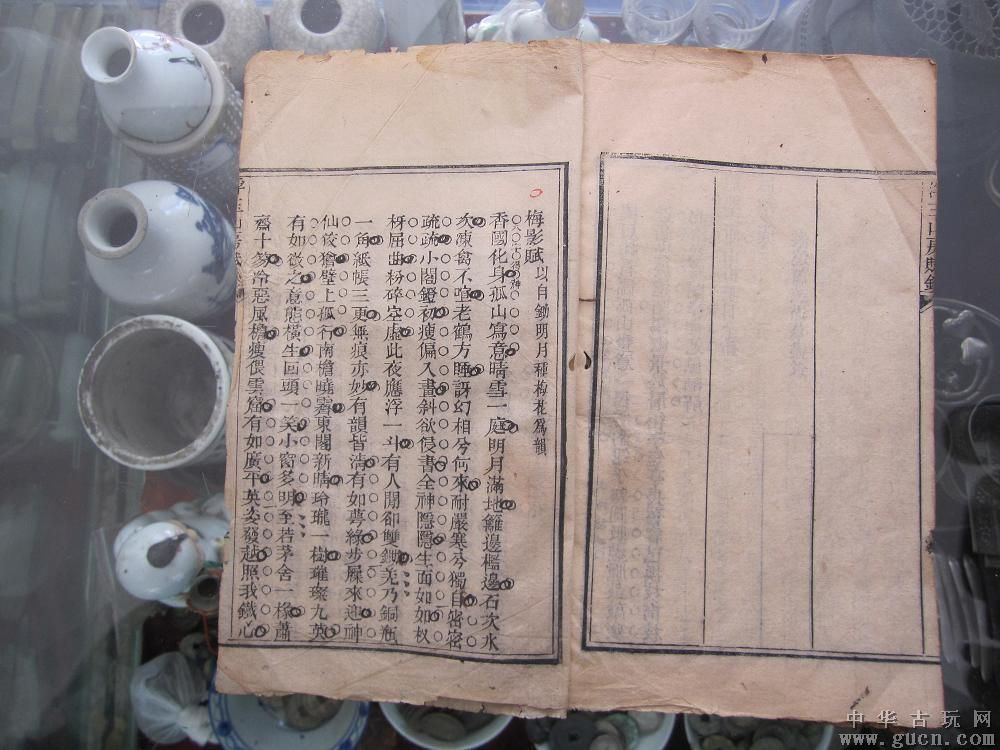 山房賦鈔
梅影賦 以自鋤明月種梅花爲韻
香國化身孤山寫意晴雪一庭明月滿地籬邊檻邊石次水
次凍禽不喧老鶴方睡訝幻相兮何來耐嚴寒兮獨自密密
疏疏小閣鐙初瘦偏入畫斜欲侵書全神隱隱生面如如杈
枒屈曲粉碎空虛此夜應浮一斗有人閒卻雙鋤羌乃銅瓶
一角紙帳三更無痕亦妙有韻皆清有如夢綠步屧來迎神
仙狡獪壁上孤行南檐曉霽東閣新晴玲瓏一樹璀璨九英
有如徵之意態橫生回頭一笑小窗多明至若茅舍一椽蕭
齋十笏冷惡風檐瘦偎雲窟有如廣平英姿發越照我鐵心
中华古玩网
www.gucn.com